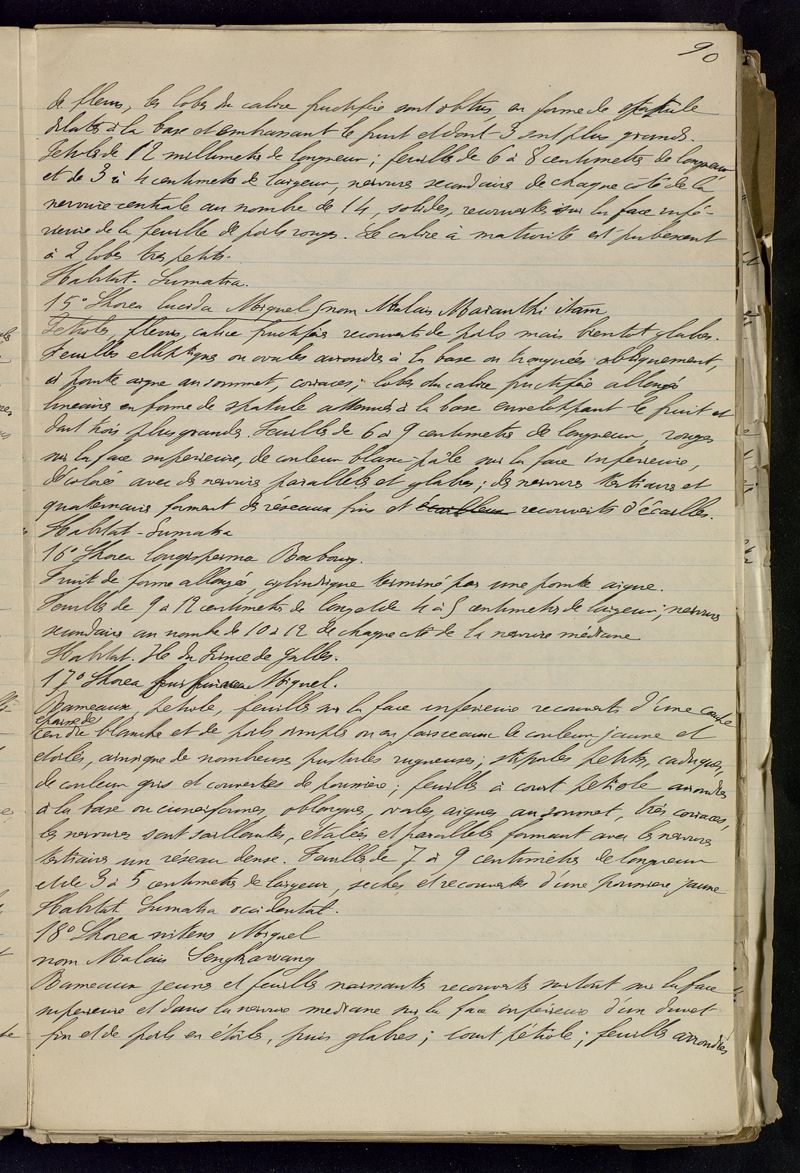 90
de fleurs, les lobes du calice fructifié sont obtus en forme de spatule
dilatés à la base et embrassant le fruit et dont 3 sont plus grands.
Petiole de 12 millimetres de longueur; feuilles de 6 à 8 centimetres de longueur
et de 3 à 4 centimetres de largeur, nervures secondaires de chaque coté de la
nervure centrale au nombre de 14, solides, recouvertes sur la face infé-
rieure de la feuille de poils rouges. Le calice à maturité est pubescent
à 2 lobes tres petits.
Habitat. Sumatra.
15° Shorea lucida Miquel nom Malais Maranthi itam
Petioles, fleurs, calice fructifié recouverts de poils mais bientot glabres.
Feuilles elliptiques ou ovales arrondies à la base ou tronquées obliquement,
à pointe aigue au sommet, coriaces; lobes du calice fructifié allongés
lineaires en forme de spatule attenués à la base enveloppant le fruit et
dont trois plus grands. Feuilles de 6 à 9 centimetres de longueur, rouges
sur la face superieure, de couleur blanc-pâle sur la face inferieure,
décolorés avec des nervures paralleles et glabres; des nervures tertiaires et
quaternaires forment des réseaux fins et recouverts d'écailles.
Habitat. Sumatra
16° Shorea longisperma Roxbourg.
Fruit de forme allongée cylindrique terminé par une pointe aigue.
Feuilles de 9 à 12 centimetres de long et de 4 à 5 centimetres de largeur; nervures
secondaires au nombre de 10 à 12 de chaque coté de la nervure mediane
Habitat. Ile du Prince de Galles.
17° Shorea Miquel.
Rameaux, petiole, feuilles sur la face inferieure recouverts d'une couche
épaisse de
cendre blanche et de poils simples ou en faisceaux de couleur jaune et
etoilés, ainsi que de nombreuses pustules rugueuses; stipules petites, caduques,
de couleur gris et couvertes de poussiere; feuilles à court petiole arrondies
à la base ou cuneiformes, oblongues, ovales aigues au sommet, très coriaces,
les nervures sont saillantes, étalées et paralleles formant avec les nervures
tertiaires un réseau dense. Feuilles de 7 à 9 centimètres de longueur
et de 3 à 5 centimetres de largeur, seches et recouvertes d'une poussiere jaune
Habitat Sumatra occidental.
18° Shorea nitens Miquel
nom Malais Sengkawang
Rameaux jeunes et feuilles naissantes recouverts surtout sur la face
superieure et dans la nervure mediane sur la face inférieure d'un duvet
fin et de poils en étoiles, puis glabres; court pétiole; feuilles arrondies